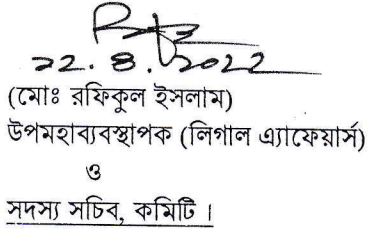 22.8.2022
(মোঃ রফিকুল ইসলাম)
উপমহাব্যবস্থাপক (লিগাল এ্যাফেয়ার্স)
ও
সদস্য সচিব, কমিটি ।